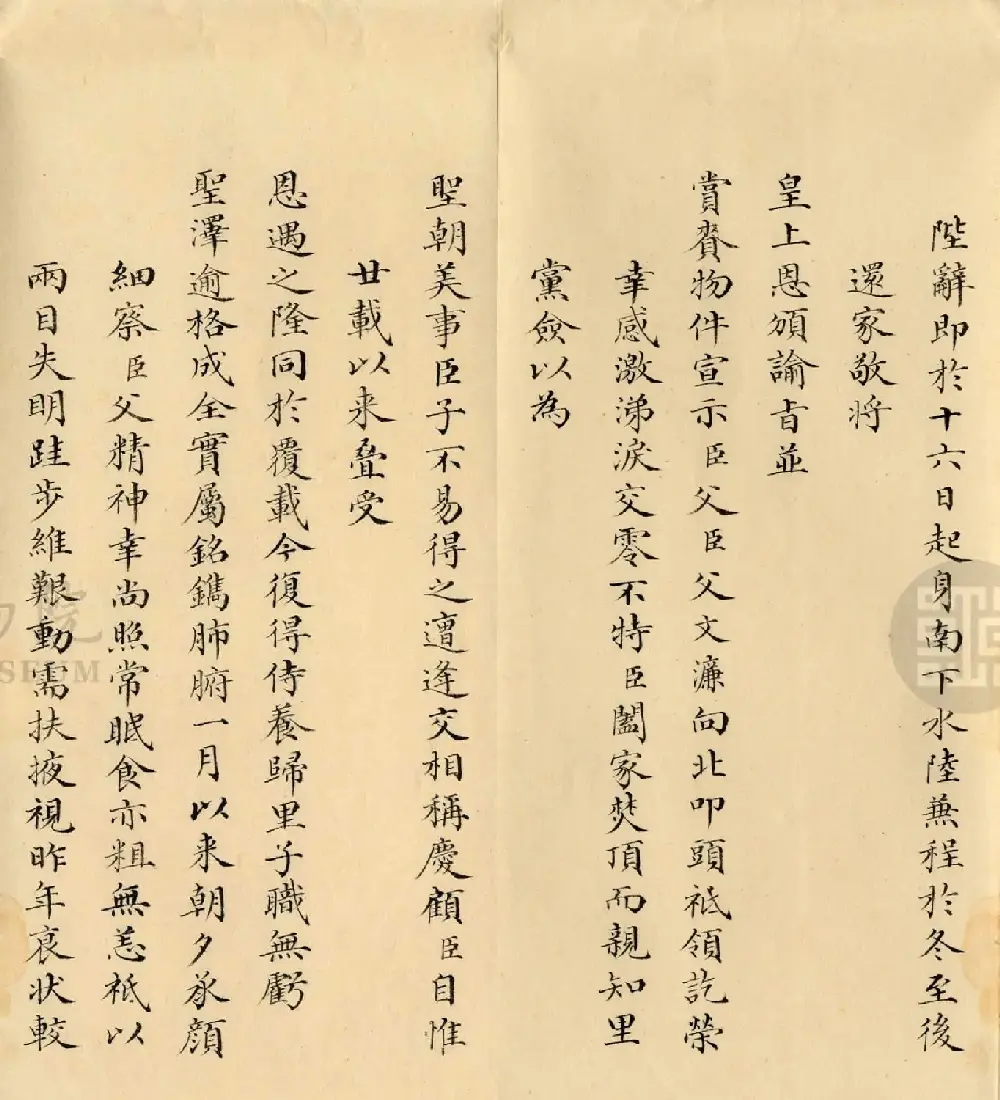 陛辭即於十六日起身南下水陸兼程於冬至後
還家敬將
皇上恩頒諭旨並
賞賚物件宣示臣父臣父文濂向北叩頭祗領訖榮
幸感激涕淚交零不特臣闔家焚頂而親知里
黨僉以為
聖朝美事臣子不易得之遭逢交相稱慶顧臣自惟
廿載以来疊受
恩遇之隆同於覆載今復得侍養歸里子職無虧
聖澤逾格成全實屬銘鐫肺腑一月以来朝夕承顔
細察臣父精神幸尚照常眠食亦粗無恙祇以
兩目失明跬步維艱動需扶掖視昨年衰状較
院
SEUM